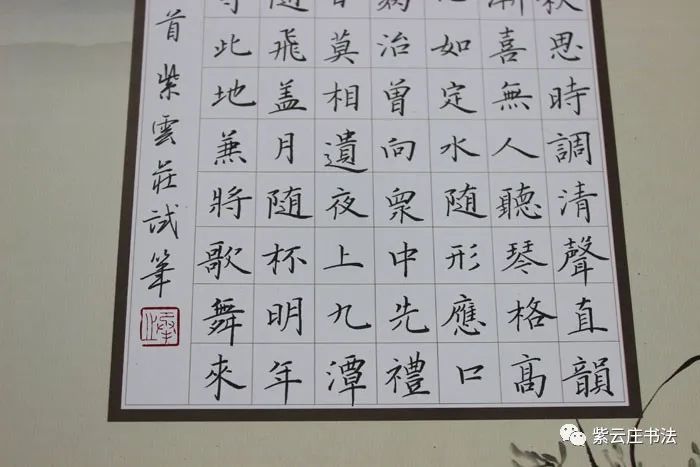 秋思時調清聲直韻
漸喜無人聽琴格高
心如定水随形應口
病治曾向眾中先禮
日莫相遺夜上九潭
随飛盖月随杯明年
守此地兼將歌舞來
首 紫雲莊試筆
紫云庄书法